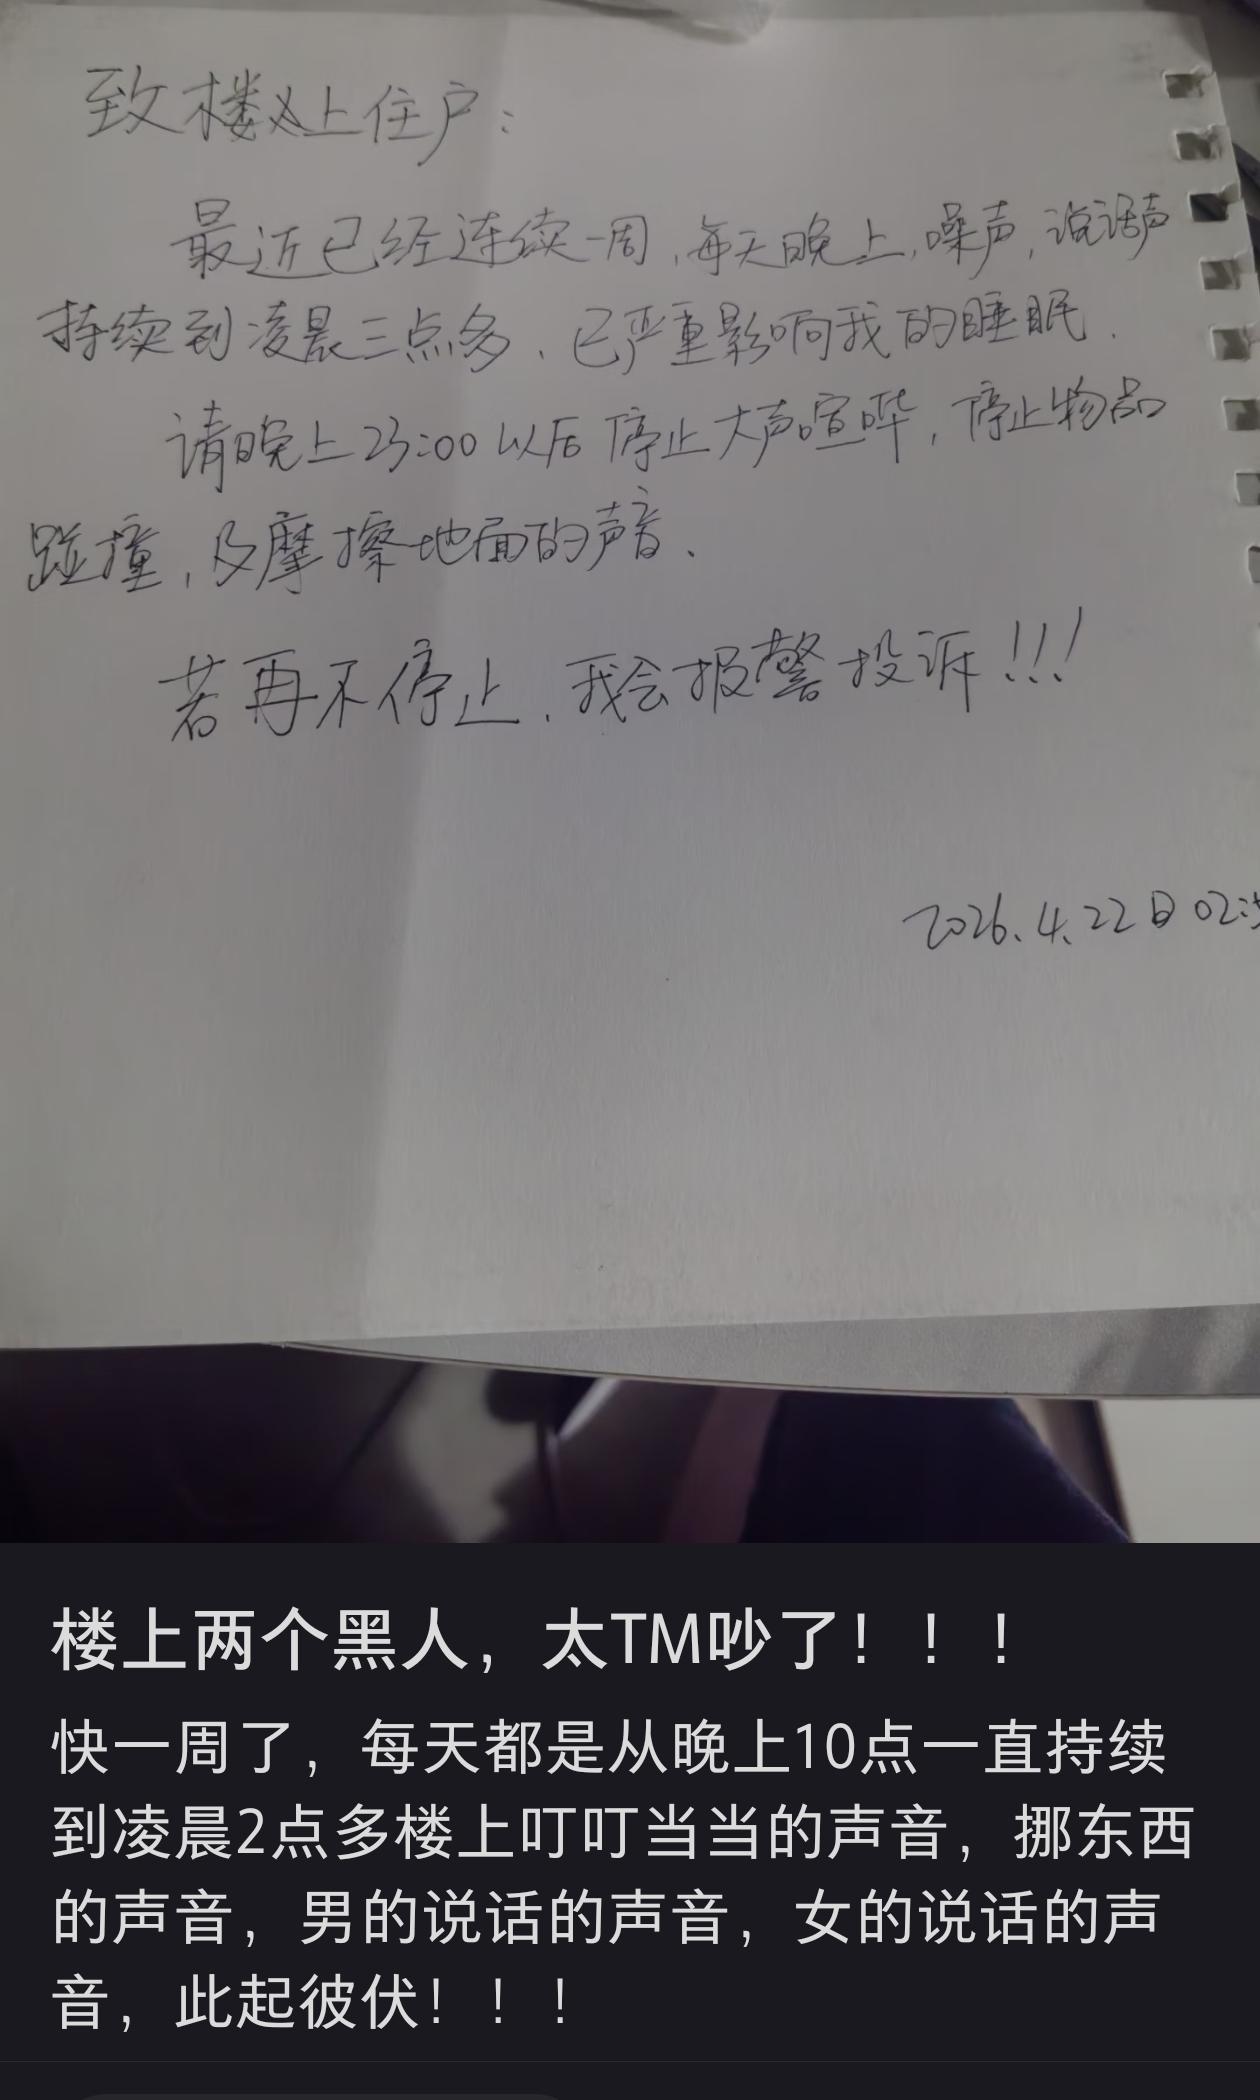 致楼上住户：
最近已经连续一周，每天晚上，噪声，说话声
持续到凌晨三点多、已严重影响我的睡眠．
请晚上23:00以后停止大声喧哗，停止物品
碰撞，及摩擦地面的声音、
若再不停止、我会报警投诉!!!
2026.4.22日 02:
楼上两个黑人，太TM吵了！！！
快一周了，每天都是从晚上10点一直持续
到凌晨2点多楼上叮叮当当的声音，挪东西
的声音，男的说话的声音，女的说话的声
音，此起彼伏！！！